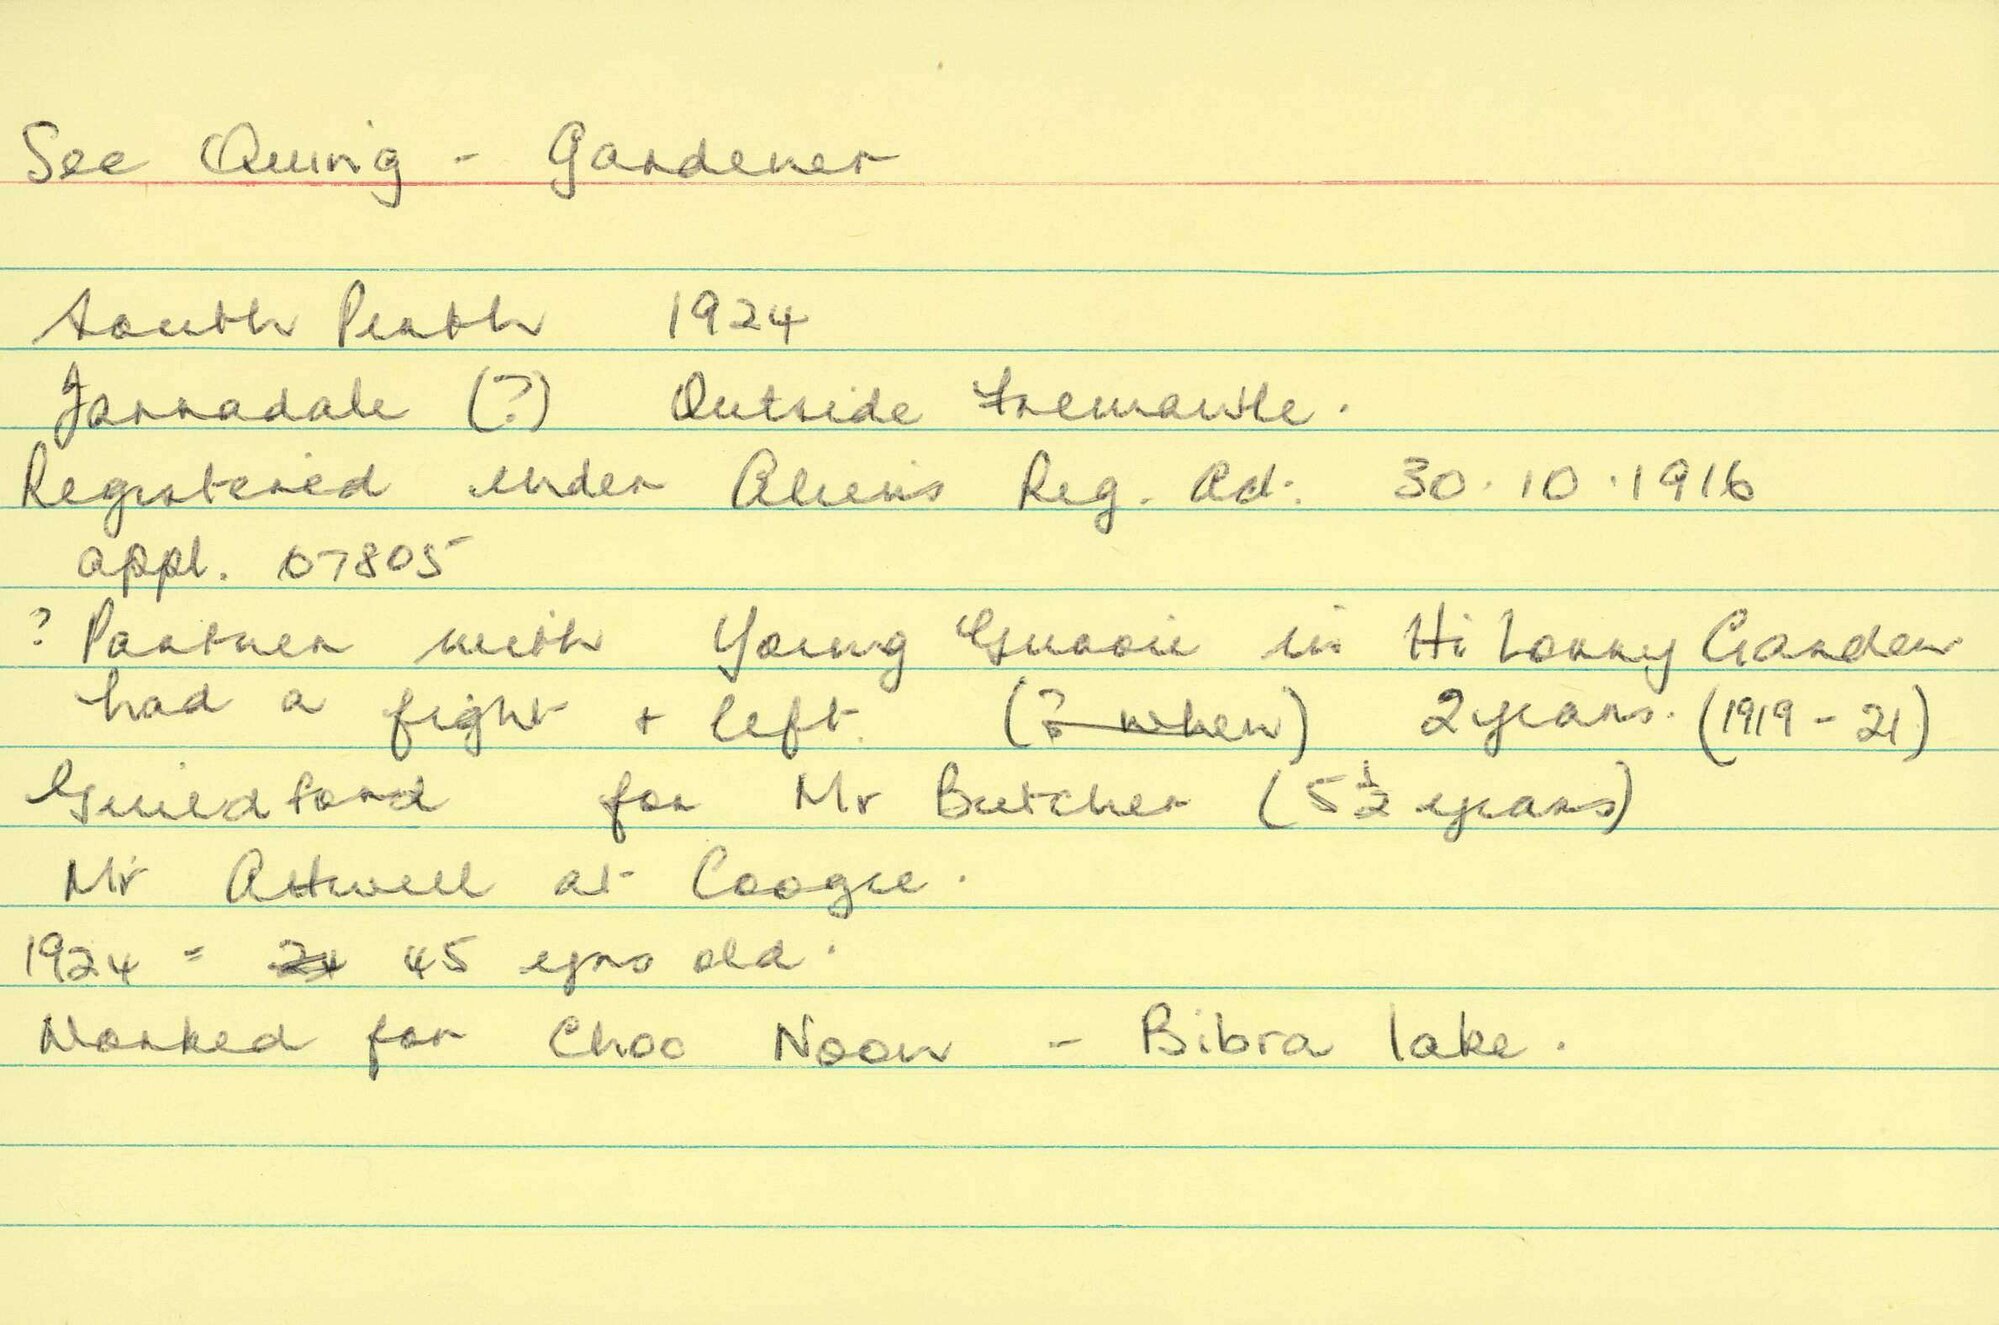 See Quing - Gardener
South Perth 1924
Jarradale (?) Outside Fremantle.
Registered under Aliens Reg. Act. 30.10.1916
appl. 07805
? Partner with Young in Hi Lorry Garden
had a fight + left. (? when) 2 years. (1919 - 21)
Guildford for Mr Butcher (5½ years)
Mr Attwell at Coogee.
1924 = 24 45 yrs old.
Worked for Choo Noon - Bibra lake.